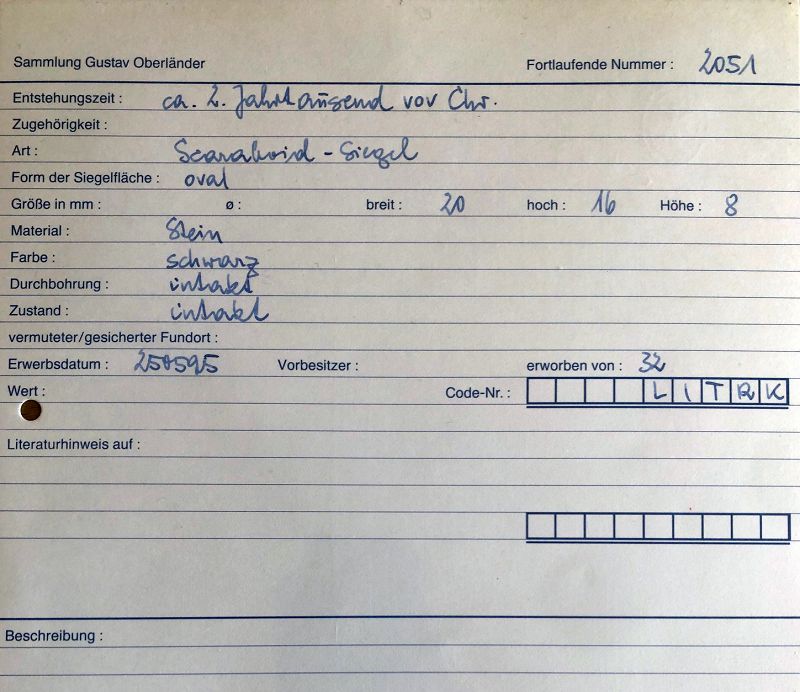 Sammlung Gustav Oberländer Fortlaufende Nummer : 2051
Entstehungszeit : ca. 2. Jahrtausend vor Chr.
Zugehörigkeit :
Art : Scaraboid - Siegel
Form der Siegelfläche : oval
Größe in mm : ø : breit : 20 hoch : 16 Höhe : 8
Material : Stein
Farbe : schwarz
Durchbohrung : intakt
Zustand : intakt
vermuteter/gesicherter Fundort :
Erwerbsdatum : 250595 Vorbesitzer : erworben von : 32
Wert : Code-Nr. : LITRK
Literaturhinweis auf :
Beschreibung :